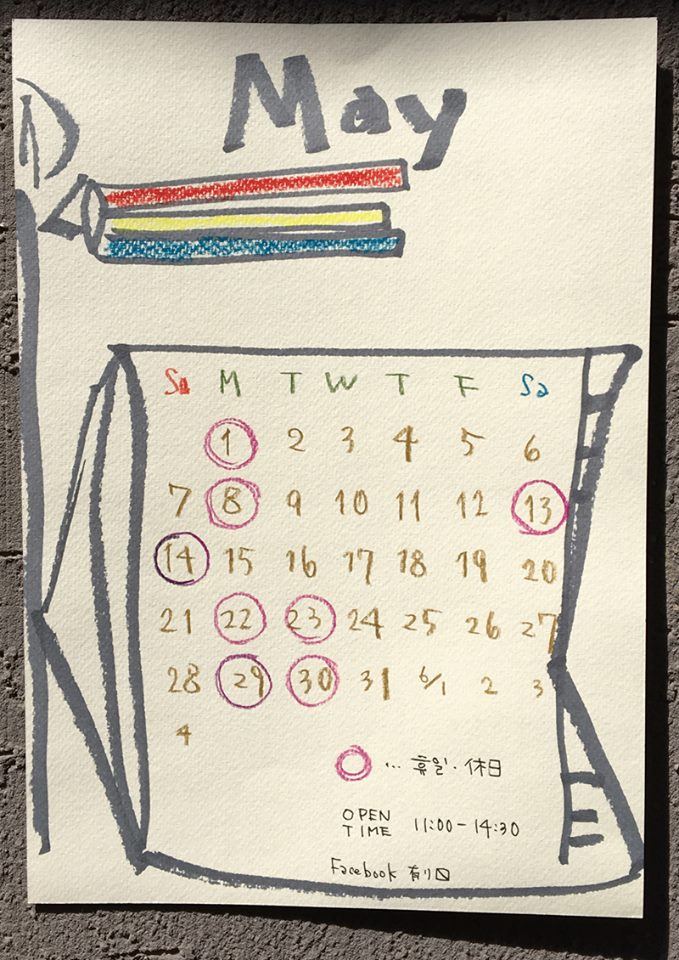 May
Su M T W T F Sa
1 2 3 4 5 6
7 8 9 10 11 12 13
14 15 16 17 18 19 20
21 22 23 24 25 26 27
28 29 30 31 6/1 2 3
4
… 휴일・休日
OPEN
TIME 11:00-14:30
Facebook 有り